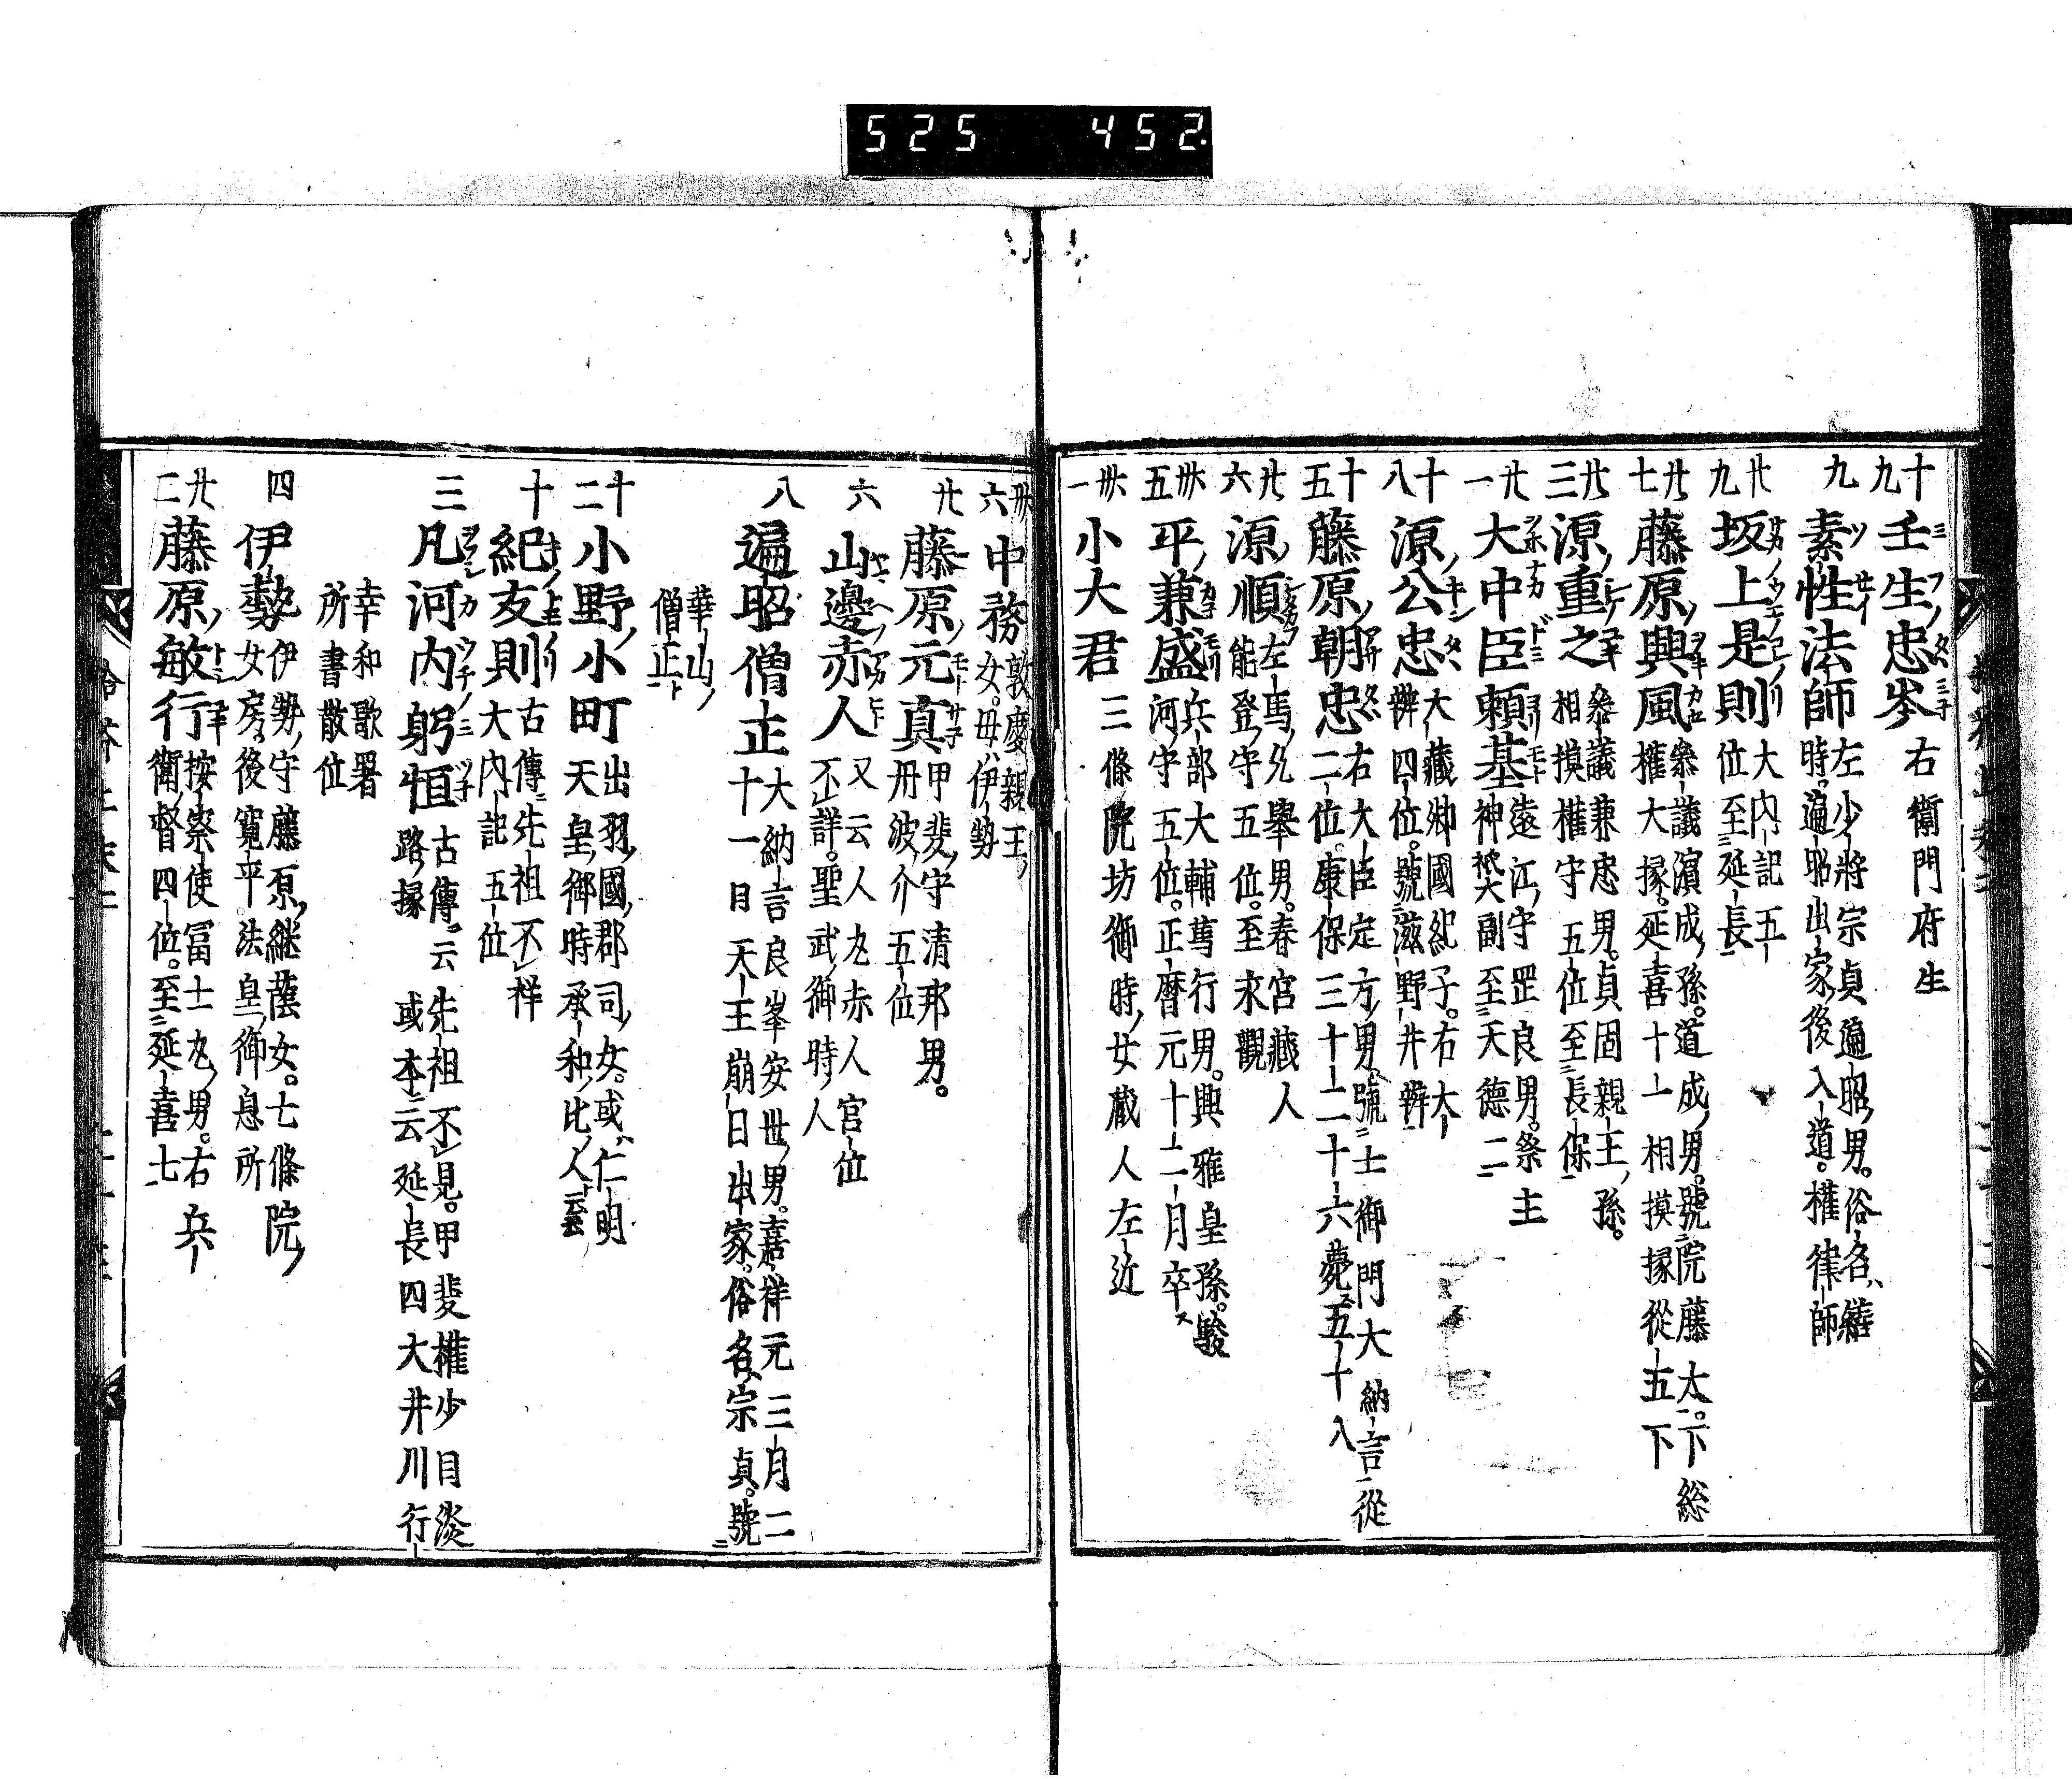 525 452
十九 壬生忠岑 右衛門府生
九 素性法師 左少將宗貞遍昭男。俗名
時。遍昭出家後入道。權律師
廿九 坂上是則 大内記五
位至延長
廿七 藤原興風 參議濱成孫。道成男。號院藤太。下総
權大掾。延喜十一相摸掾從五下
廿三 源重之 參議兼忠男。貞固親王孫。
相摸權守五位至長保
廿一 大中臣頼基 遠江守罡良男。祭主
神祇大副至天德二
十八 源公忠 大藏卿國紀子。右大
辨四位。號滋野井辨
十五 藤原朝忠 右大臣定方男。號土御門大納言從
二位。康保三十二十六薨五十八
廿六 源順 左馬允舉男。春宮藏人
能登守五位。至永觀
卅五 平兼盛 兵部大輔篤行男。興雅皇孫。駿
河守五位。正暦元十二月卒
卅一 小大君 三條院坊御時女蔵人左近
卅六 中務 敦慶親王
女。母伊勢
廿 藤原元真 甲斐守清邦男。
丹波介五位
六 山邊赤人 又云人丸赤人宮位
不詳。聖武御時人
八 遍昭僧正 大納言良峯安世男。嘉祥元三月二
十一日天王崩日出家。俗名宗貞。號
華山
僧正
十二 小野小町 出羽國郡司女。或仁明
天皇御時承和比人云云
十 紀友則 古傳先祖不祥
大内記五位
三 凡河内躬恒 古傳。云先祖不見。甲斐權少目淡
路掾 或本云延長四大井川行
幸和歌署
所書散位
四 伊勢 伊勢守藤原継蔭女。七條院
女房。後寬平法皇御息所
廿二 藤原敏行 按察使冨士丸男。右兵
衛督四位。至延喜七